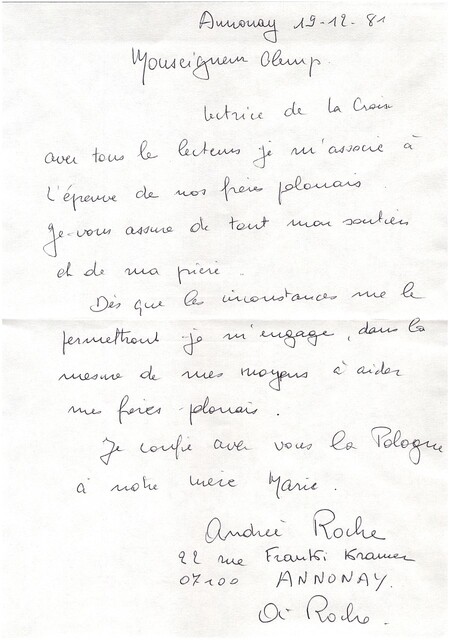 Annonay 19-12-81
Monseigneur Glemp.
Lectrice de La Croix
avec tous les lecteurs je m'associe à
l'épreuve de nos frères polonais.
Je vous assure de tout mon soutien
et de ma prière.
Dès que les circonstances me le
permettront je m'engage, dans la
mesure de mes moyens à aider
mes frères polonais.
Je confie avec vous la Pologne
à notre mère Marie.
Andrée Roche
22 rue Franki Kramer
07100 ANNONAY.
A Roche.